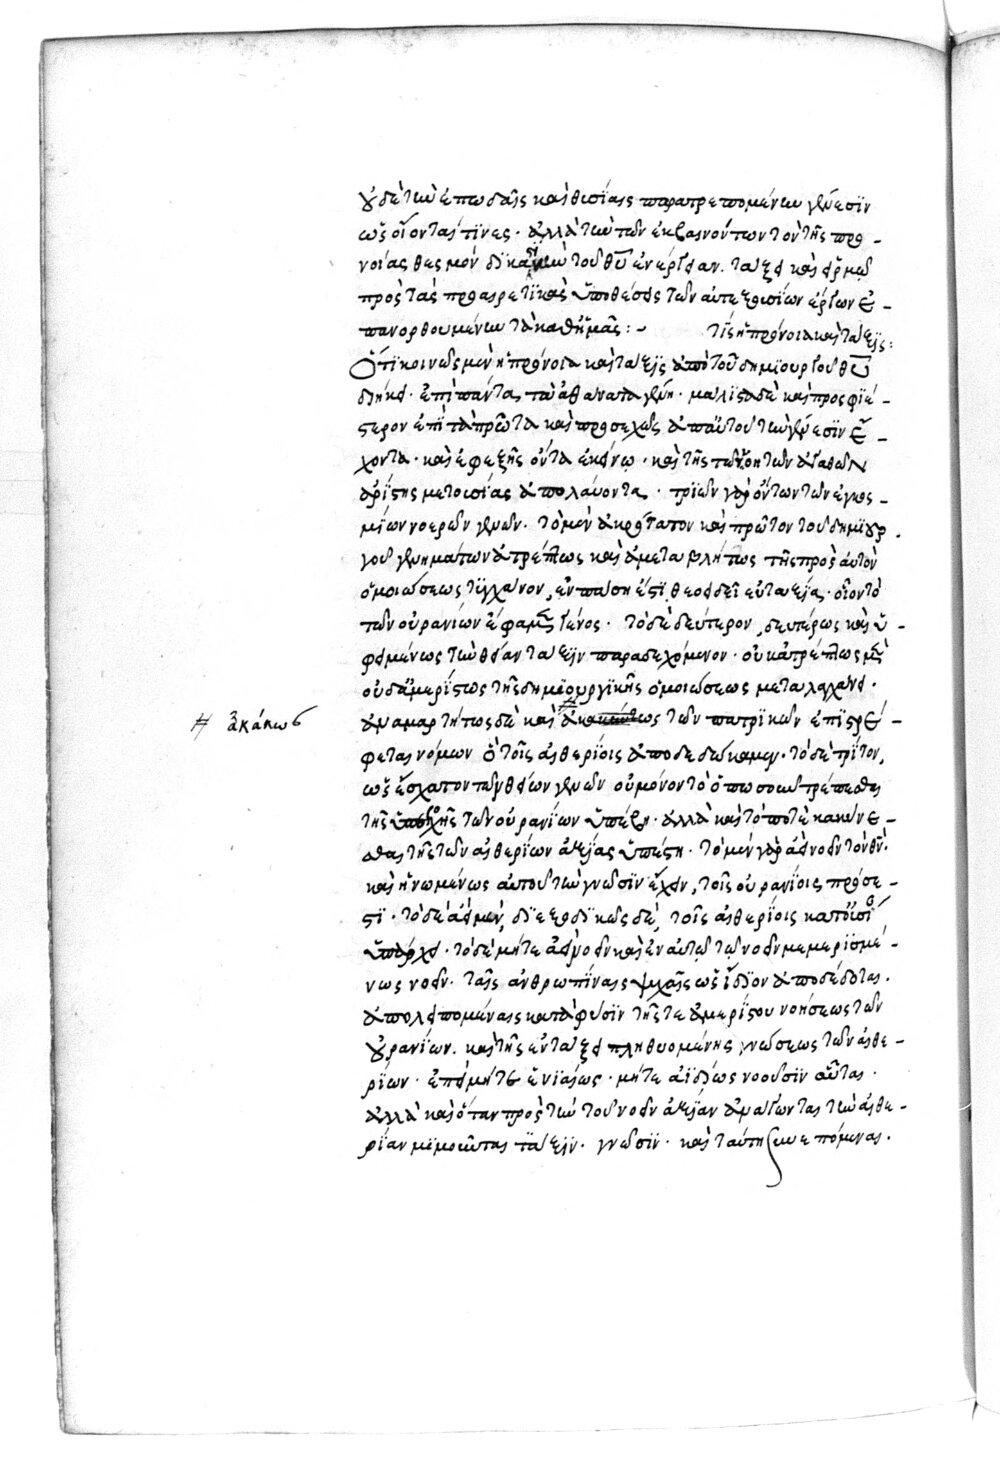 οὐδὲ τῶν ἐπῳδαῖς καὶ θυσίαις παρατρεπομένων γένεσιν
ὡς οἴονταί τινες. ἀλλὰ τῶν τῶν ἐκβαινόντων τὸν τῆς προ-
νοίας θεσμὸν δικαίων τοῦ θυ ἐνέργειαν. τάξει καὶ εἱρμῷ
πρὸς τὰς προαιρετικὰς ὑποθέσεις τῶν αὐτεξουσίων ἔργων ἐ-
πανορθουμένων τὰ καθ' ἡμᾶς:- τίς ἡ πρόνοια καὶ τάξις:
Ὅτι κοινῶς μὲν ἡ πρόνοια καὶ τάξις ἀπὸ τοῦ δημιουργοῦ θυ
διήκει. ἐπὶ πάντα τὰ ἀθάνατα γένη. μάλιστα δὲ καὶ προσφυέ-
στερον ἐπὶ τὰ πρῶτα καὶ προσεχῶς ἀπ' αὐτοῦ τὴν γένεσιν ἔ-
χοντα. καὶ ἐφεξῆς ὄντα ἐκείνῳ. καὶ τῆς τῶν νοητῶν ἀγαθῶν
ἀρίστης μετουσίας ἀπολαύοντα. τριῶν γὰρ ὄντων τῶν ἐγκοσ-
μίων νοερῶν γενῶν. τὸ μὲν ἀκρότατον καὶ πρῶτον τοῦ δημιουρ
γοῦ γεννημάτων ἀτρέπτως καὶ ἀμεταβλήτως τῆς πρὸς αὐτὸν
ὁμοιώσεως τυγχάνον, ἐν πάσῃ ἐστὶ θεοειδεῖ εὐταξίᾳ. οἷον τὸ
τῶν οὐρανίων ἔφαμεν γένος. τὸ δὲ δεύτερον, δευτέρως καὶ ὑ-
φειμένως τὴν θείαν τάξιν παραδεχόμενον. οὐκ ἀτρέπτως μὲν
οὐδ' ἀμερίστως τῆς δημιουργικῆς ὁμοιώσεως μεταλαγχάνει.
ἀναμαρτήτως δὲ καὶ τῶν πατρικῶν ἐπιστρέ-
φεται νόμων ὃ τοῖς αἰθερίοις ἀποδεδώκαμεν. τὸ δὲ τρίτον,
ὡς ἔσχατον τῶν θείων γενῶν οὐ μόνον τὸ ὁπωσοῦν τρέπεσθαι
τῆς τῶν οὐρανίων ὑπέβη. ἀλλὰ καὶ τό ποτε κακύνε-
σθαι τῆς τῶν αἰθερίων ἀξίας ὑπέστη. τὸ μὲν γὰρ ἀεὶ νοεῖν τὸν θν.
καὶ ἡνωμένως αὐτοῦ τὴν γνῶσιν ἔχειν, τοῖς οὐρανίοις πρόσε-
στι. τὸ δὲ ἀεὶ μὲν, διεξοδικῶς δὲ, τοῖς αἰθερίοις κατ' οὐσίαν
ὑπάρχει. τὸ δὲ μήτε ἀεὶ νοεῖν καὶ ἐν αὐτῷ τῷ νοεῖν μεμερισμέ-
νως νοεῖν. ταῖς ἀνθρωπίναις ψυχαῖς ὡς ἴδιον ἀποδέδοται.
ἀπολειπομέναις κατὰ φύσιν τῆς τε ἀμερίστου νοήσεως τῶν
οὐρανίων. καὶ τῆς ἐν τάξει πληθυομένης γνώσεως τῶν αἰθε-
ρίων. ἐπεὶ μήτε ἑνιαίως. μήτε ἀϊδίως νοοῦσιν αὗται.
ἀλλὰ καὶ ὅταν πρὸς τὴν τοῦ νοεῖν ἀξίαν ἀνάγωνται τὴν αἰθε-
ρίαν μιμοῦνται τάξιν. γνῶσιν. καὶ ταύτῃ συνεπόμεναι.
ἀκάκως